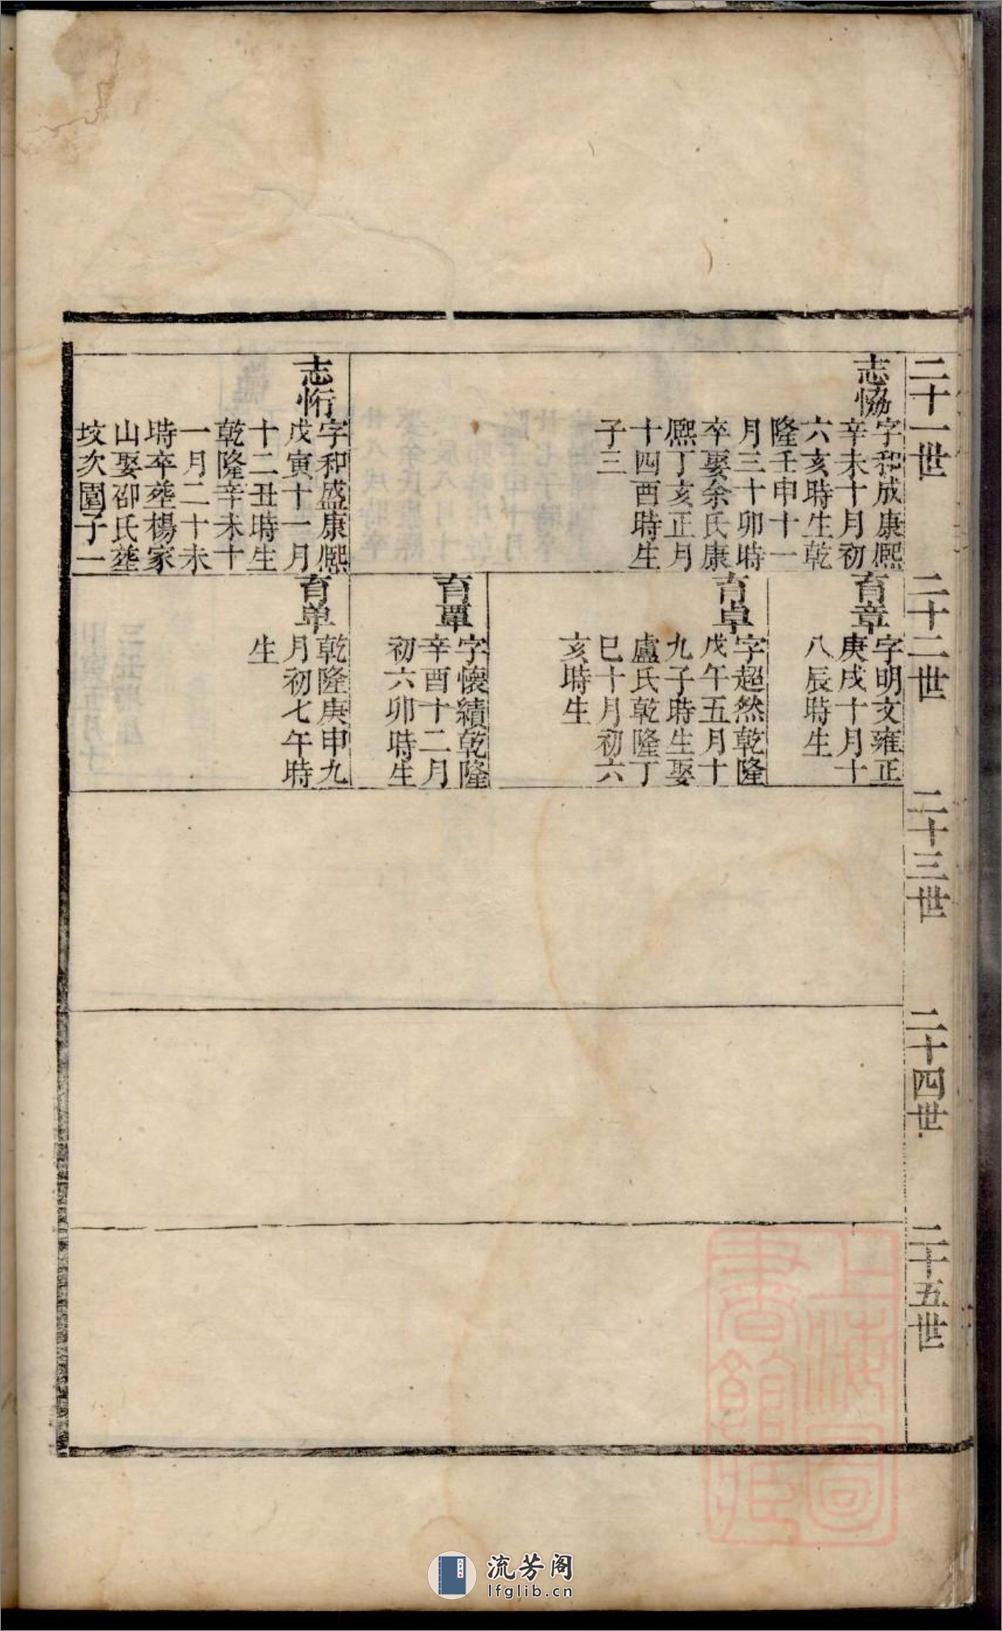 二十一世
志恊
字和成康熈
辛未十月初
六亥時生乾
隆壬申十一
月三十卯時
卒娶余氏康
熈丁亥正月
十四酉時生
子三
志恂
字和盛康熈
戊寅十一月
十二丑時生
乾隆辛未十
一月二十未
時卒塟楊家
山娶邵氏塟
坟次園子一
二十二世
育章
字明文雍正
庚戌十月十
八辰時生
育卓
字超然乾隆
戊午五月十
九子時生娶
盧氏乾隆丁
巳十月初六
亥時生
育覃
字懷績乾隆
辛酉十二月
初六卯時生
育单
乾隆庚申九
月初七午時
生
二十三世
二十四世
二十五世
上海圖
書館藏
流芳阁
lfglib.cn